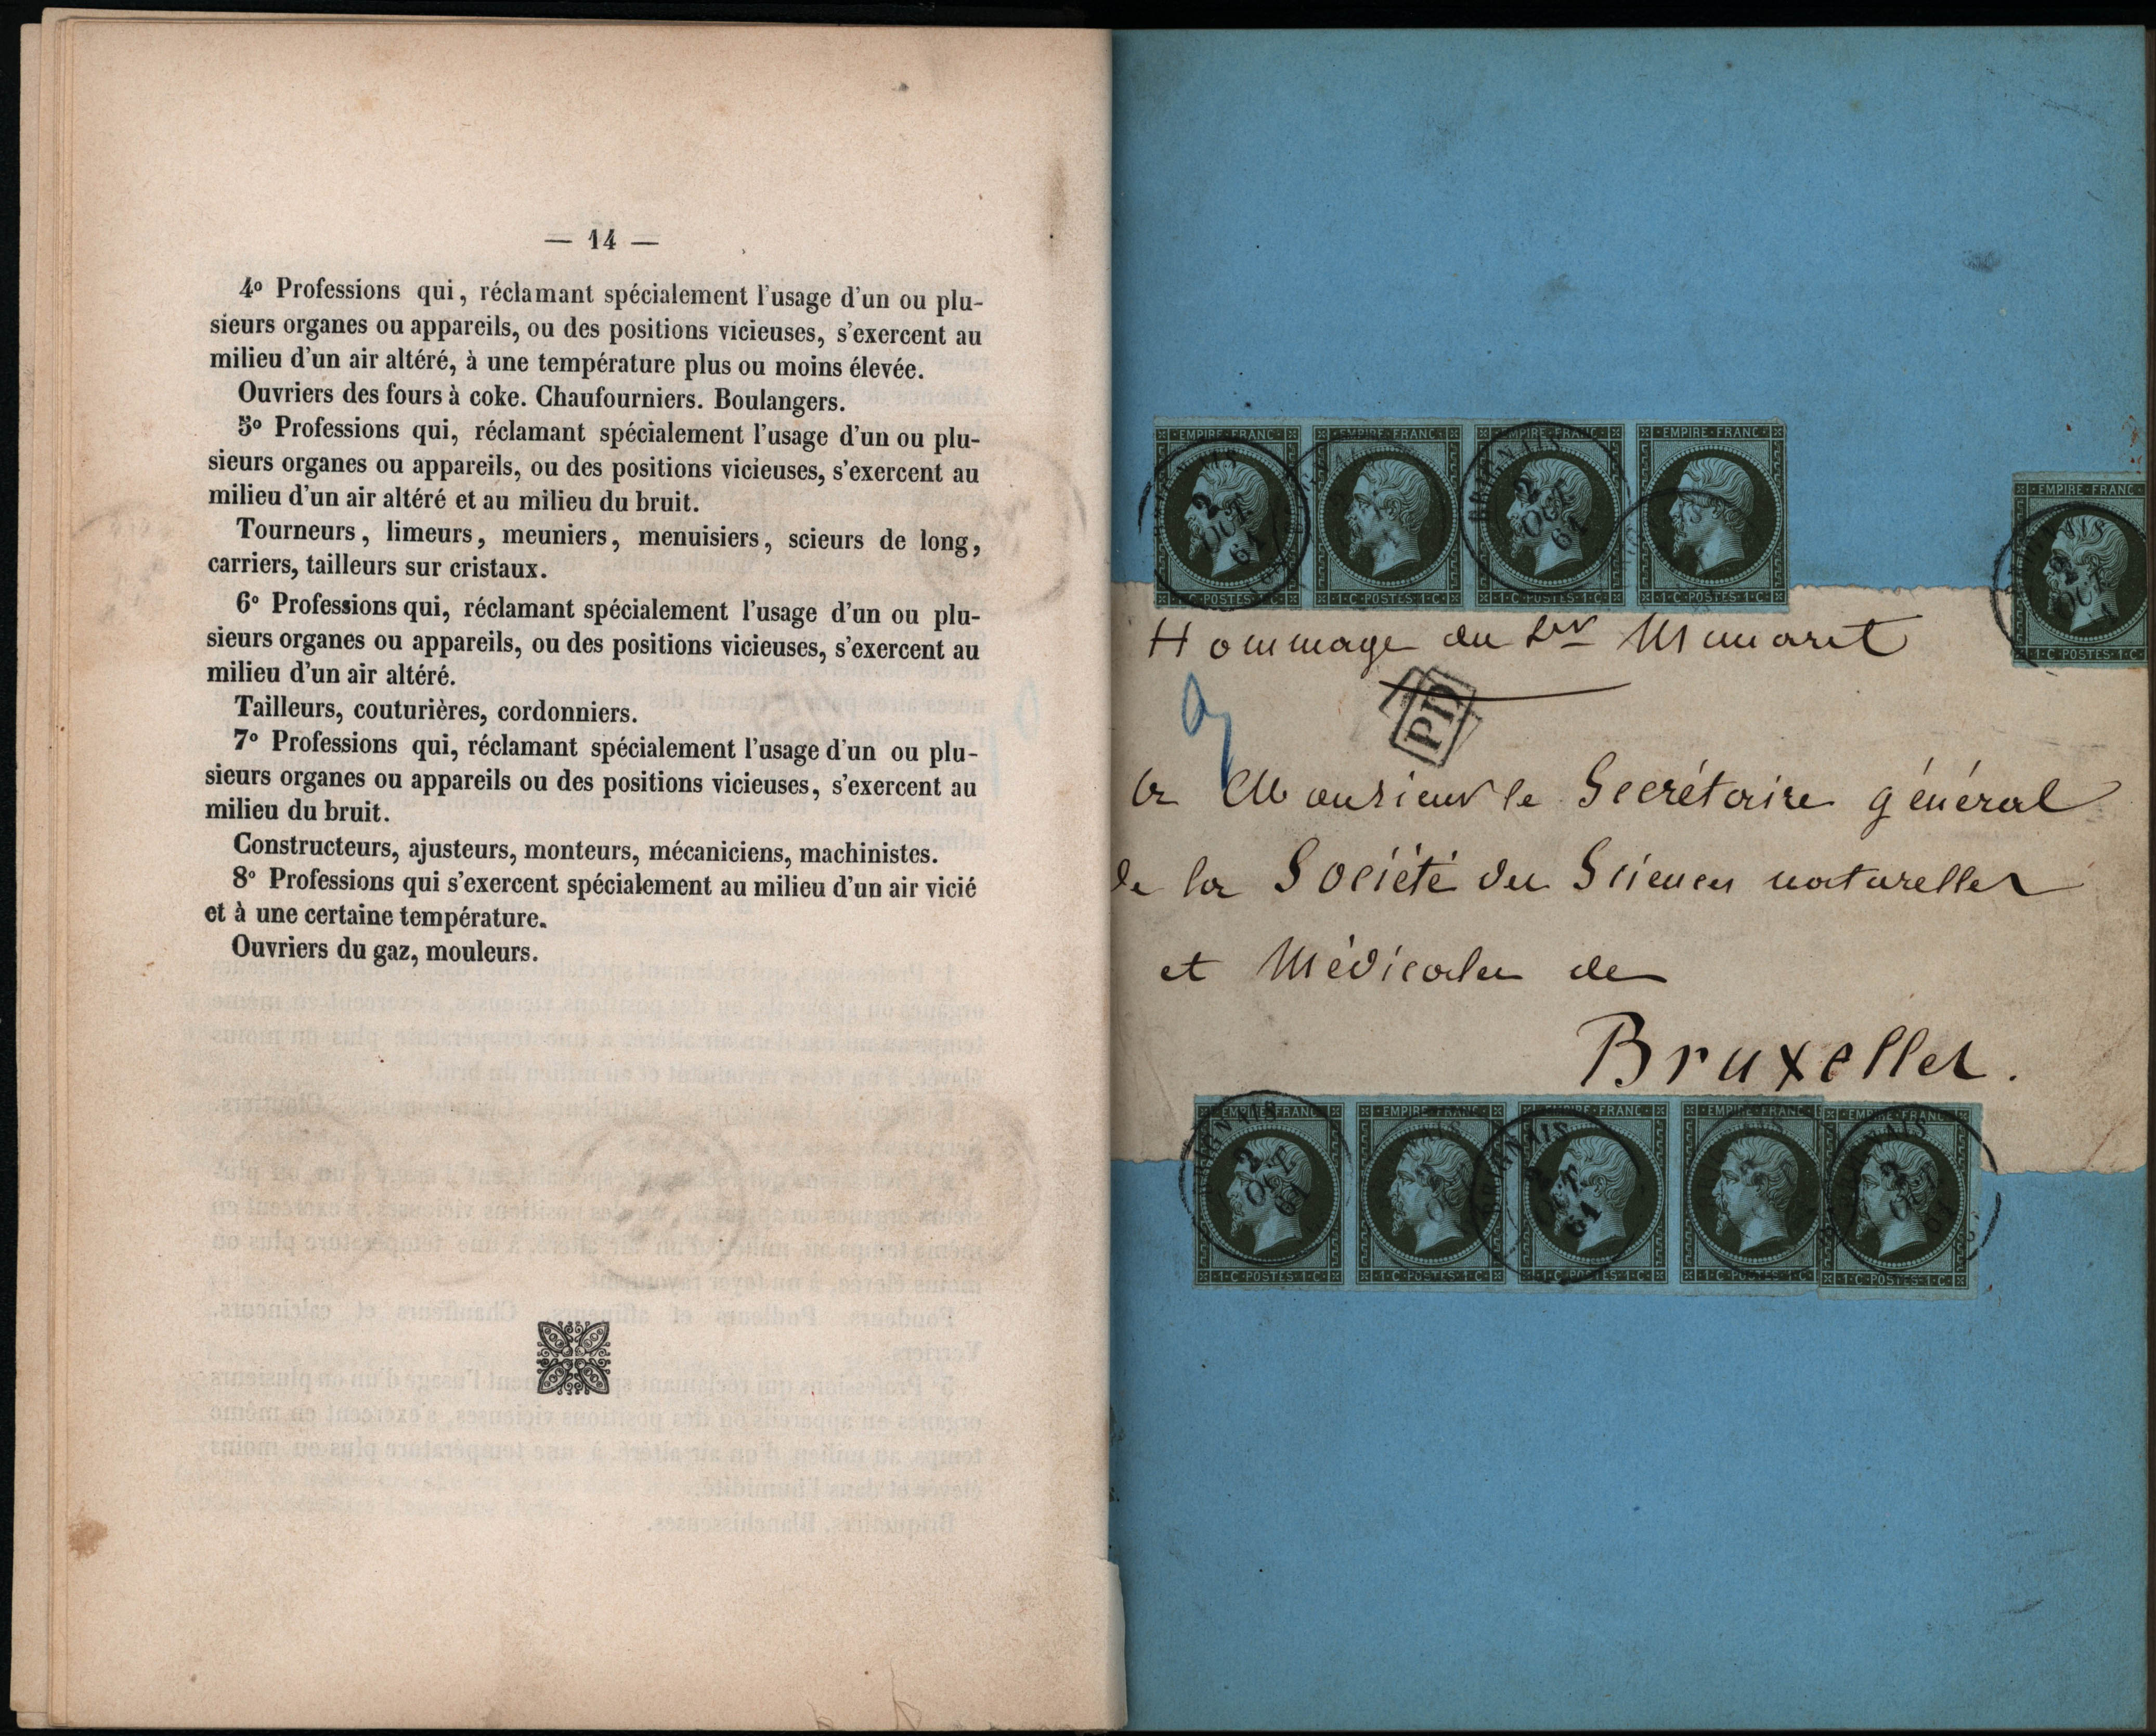 — 14 —
4º Professions qui, réclamant spécialement l'usage d'un ou plu-
sieurs organes ou appareils, ou des positions vicieuses, s'exercent au
milieu d'un air altéré, à une température plus ou moins élevée.
Ouvriers des fours à coke. Chaufourniers. Boulangers.
5º Professions qui, réclamant spécialement l'usage d'un ou plu-
sieurs organes ou appareils, ou des positions vicieuses, s'exercent au
milieu d'un air altéré et au milieu du bruit.
Tourneurs, limeurs, meuniers, menuisiers, scieurs de long,
carriers, tailleurs sur cristaux.
6º Professions qui, réclamant spécialement l'usage d'un ou plu-
sieurs organes ou appareils, ou des positions vicieuses, s'exercent au
milieu d'un air altéré.
Tailleurs, couturières, cordonniers.
7º Professions qui, réclamant spécialement l'usage d'un ou plu-
sieurs organes ou appareils ou des positions vicieuses, s'exercent au
milieu du bruit.
Constructeurs, ajusteurs, monteurs, mécaniciens, machinistes.
8º Professions qui s'exercent spécialement au milieu d'un air vicié
et à une certaine température.
Ouvriers du gaz, mouleurs.
EMPIRE FRANC EMPIRE FRANC EMPIRE FRANC EMPIRE FRANC
BRIGNAIS 2 OCT 61
1·C·POSTES·1·C 1·C·POSTES·1·C 1·C·POSTES·1·C 1·C·POSTES·1·C
EMPIRE FRANC
BRIGNAIS 2 OCT
1·C·POSTES·1·C
Hommage du Dr Munaret
PD
à Monsieur le Secrétaire général
de la Société des Sciences naturelles
et Médicales de
Bruxelles.
EMPIRE FRANC EMPIRE FRANC EMPIRE FRANC EMPIRE FRANC EMPIRE FRANC
BRIGNAIS 2 OCT 61
1·C·POSTES·1·C 1·C·POSTES·1·C 1·C·POSTES·1·C 1·C·POSTES·1·C 1·C·POSTES·1·C